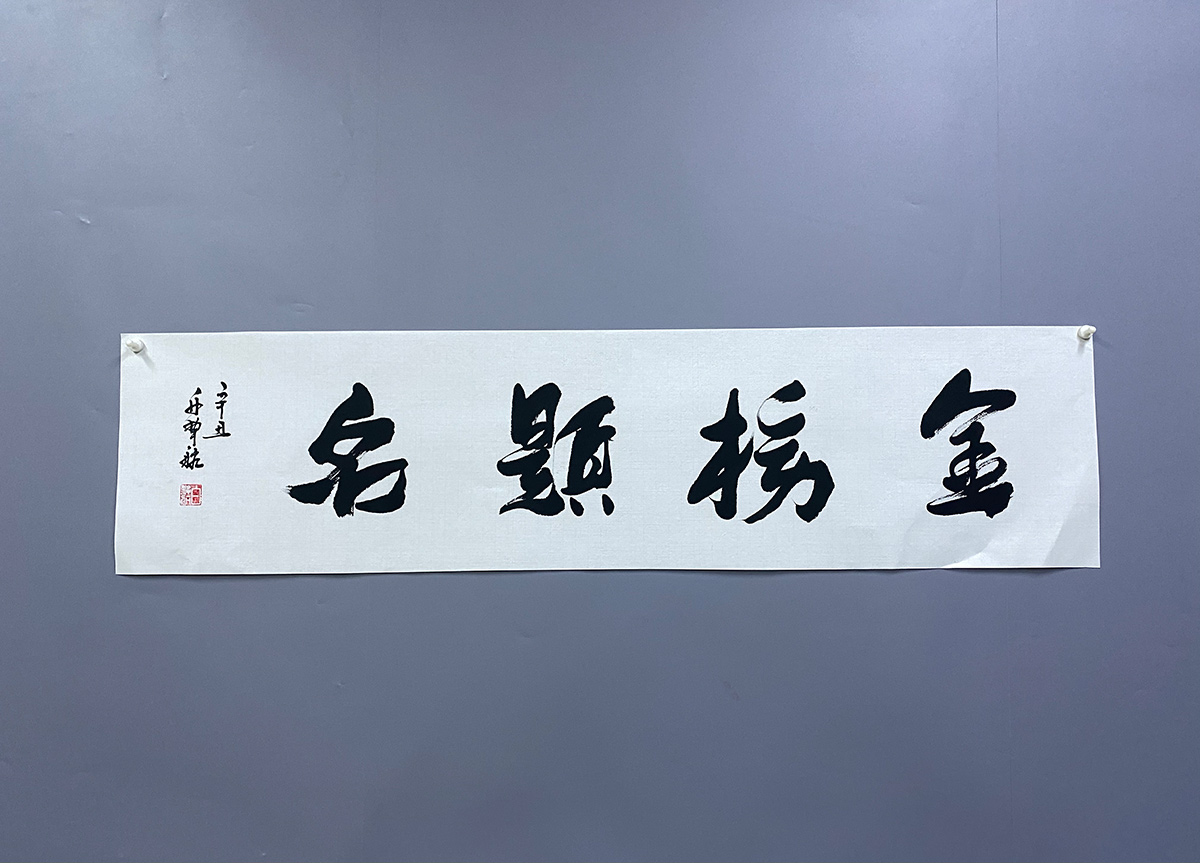 金榜題名
辛丑